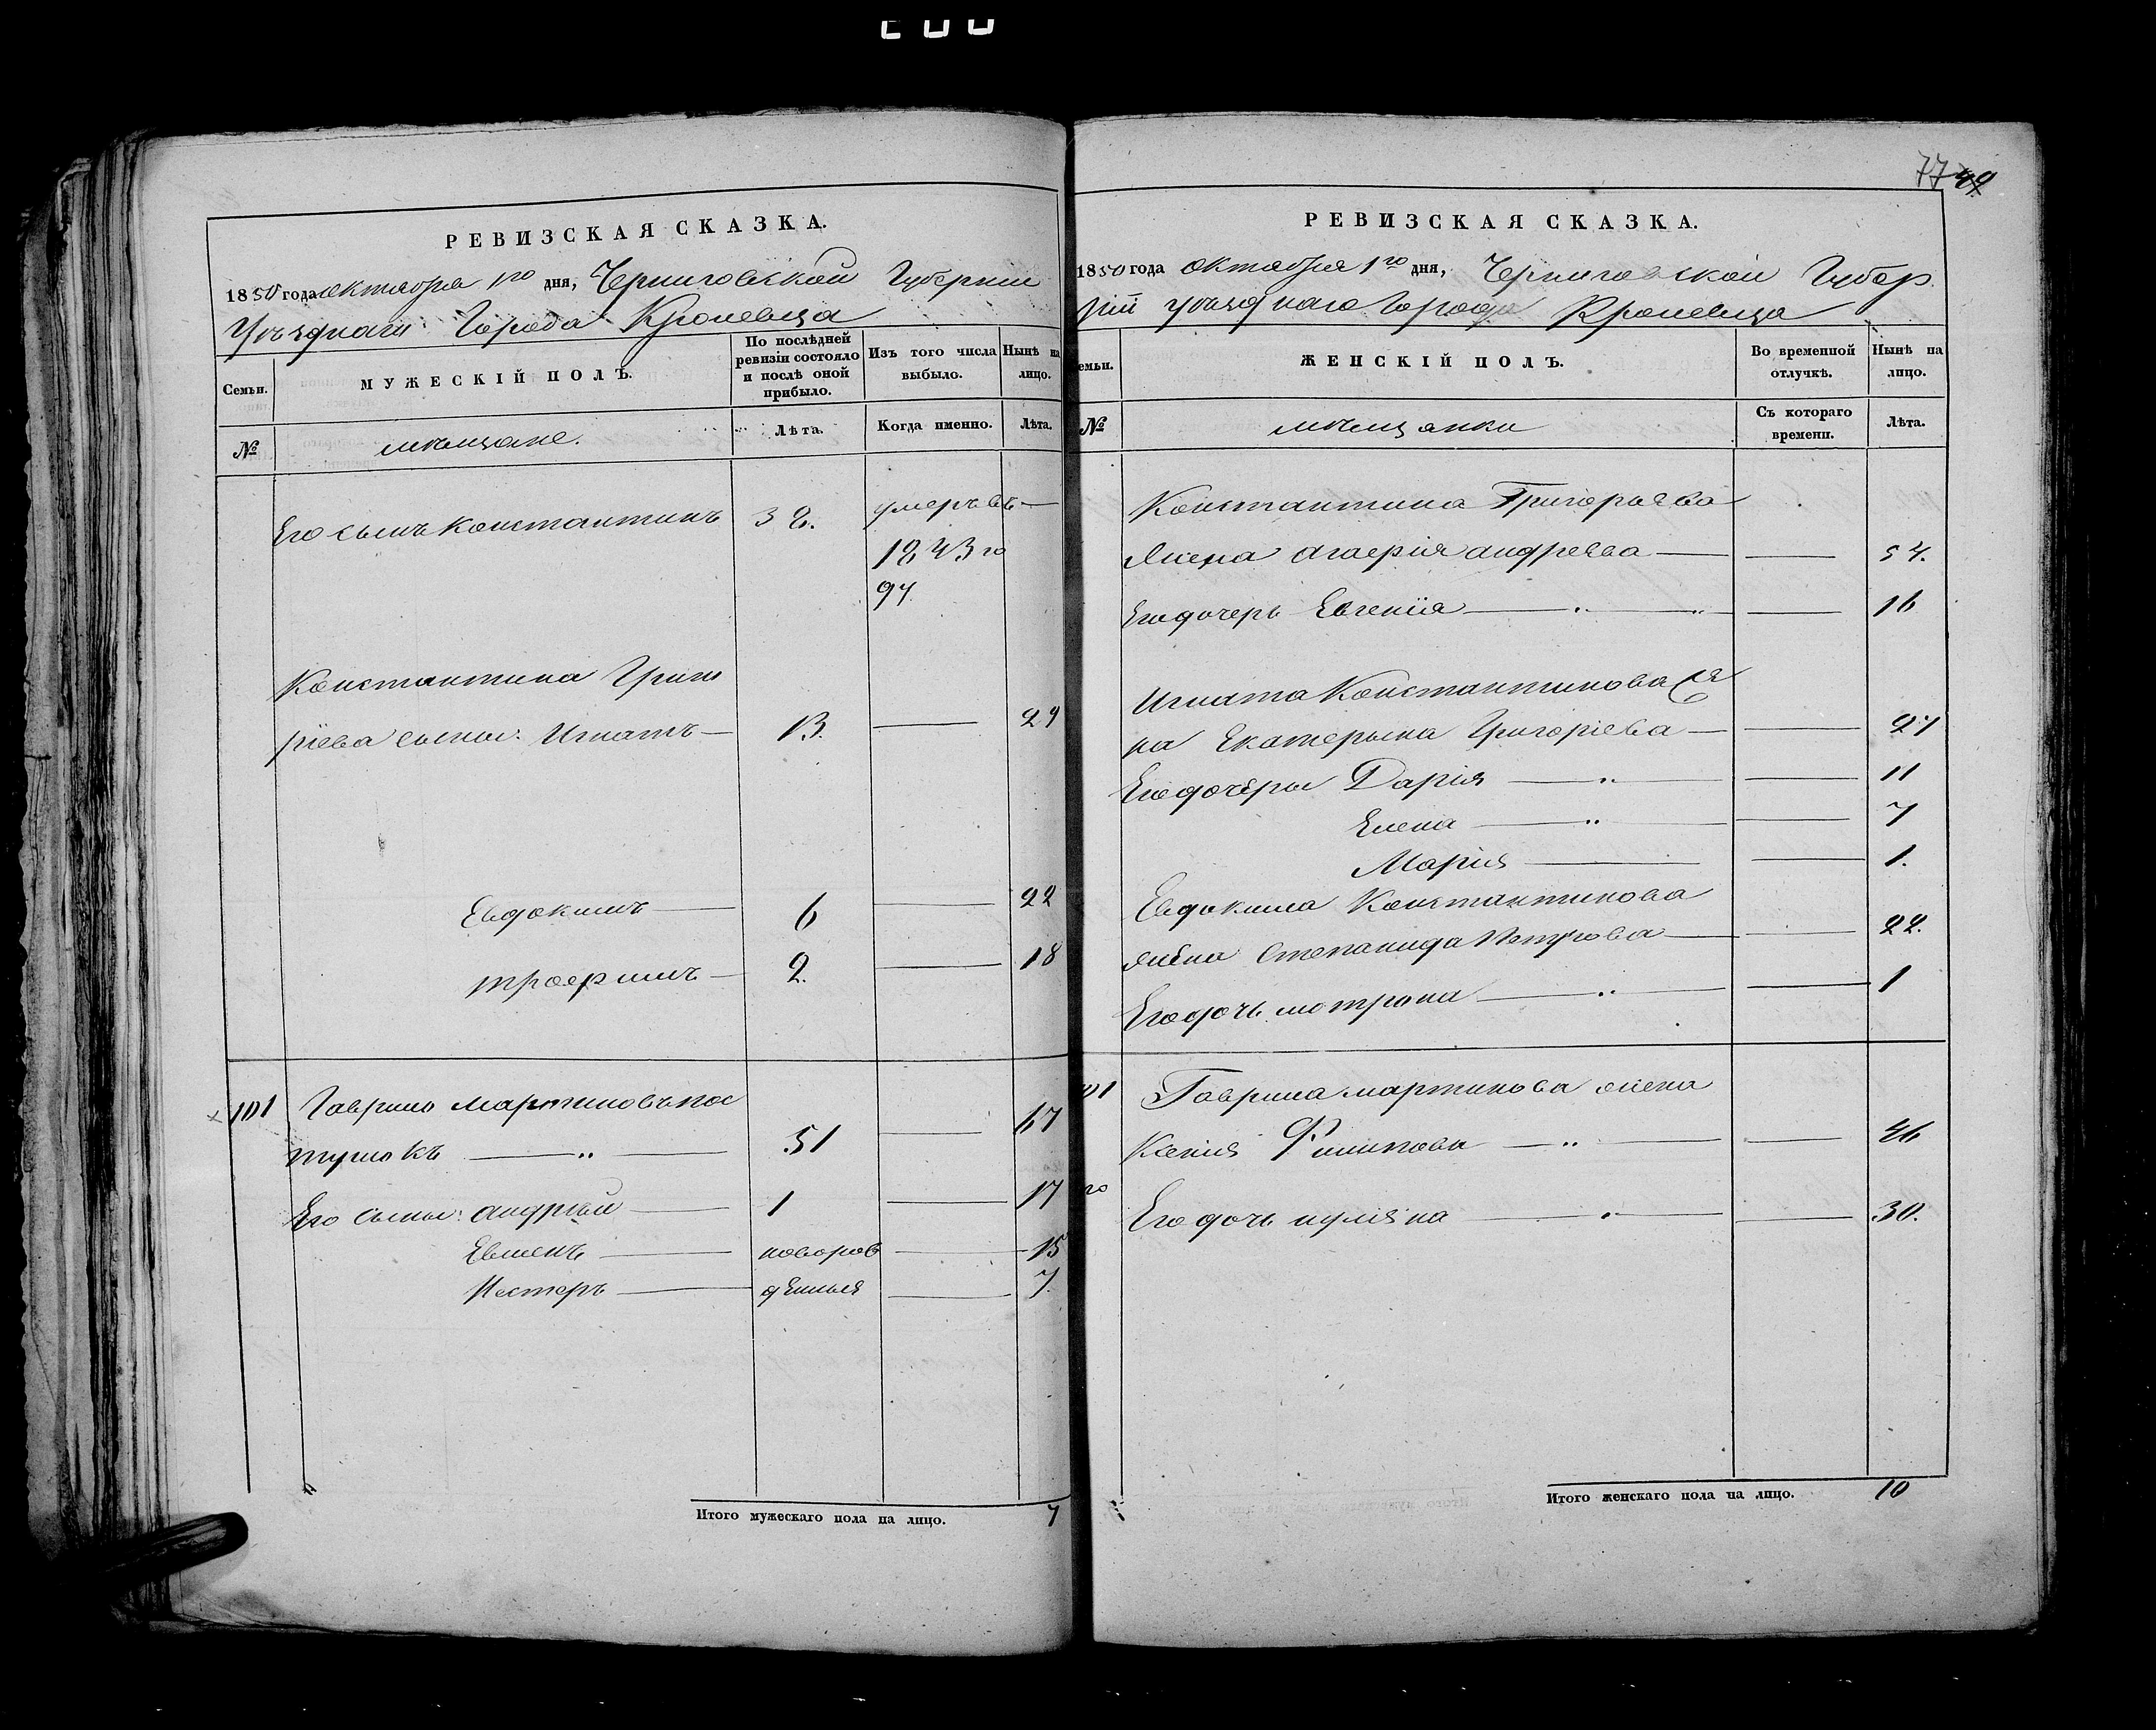 РЕВИЗСКАЯ СКАЗКА.
1850 года октября 1го дня, Черниговской Губернии
Уѣзднаго Города Кролевца
Семьи.
МУЖЕСКІЙ ПОЛЪ.
По послѣдней ревизіи состояло и послѣ оной прибыло.
Изъ того числа выбыло.
Нынѣ на лицо.
№
мѣщане.
Лѣта.
Когда именно.
Лѣта.
Его сынъ Константинъ 38. умеръ въ
1843 го
Константина Григо
ріева сыны: Игнатъ 13. 29
Евдокимъ 6 22
трофимъ 2. 18
101 Гаврило Мартиновъ
51 67
Его сыны: андрѣй 1 17
Евменъ новорож 15
Нестеръ денныя 7.
Итого мужескаго пола на лицо. 7
77 49
РЕВИЗСКАЯ СКАЗКА.
1850 года октября 1го дня, Черниговской Губер
ніи уѣзднаго Города Кролевца
емьи.
ЖЕНСКІЙ ПОЛЪ.
Во временной отлучкѣ.
Нынѣ на лицо.
№
мѣщанки
Съ котораго времени.
Лѣта.
Константина Григорьева
Жена Агафія андреева 54.
Его дочерь Евгенія 16
Игната Константинова же
на Екатерына Григоріева 27
Его дочеры Дарія 11
Елена 7
Марія 1.
Евдокима Константинова
жена Степанида Петрова 22.
Его дочь мотрона 1
01 Гаврила мартинова жена
Ксенія Филипова 46
го Его дочь 30.
Итого женскаго пола на лицо. 10